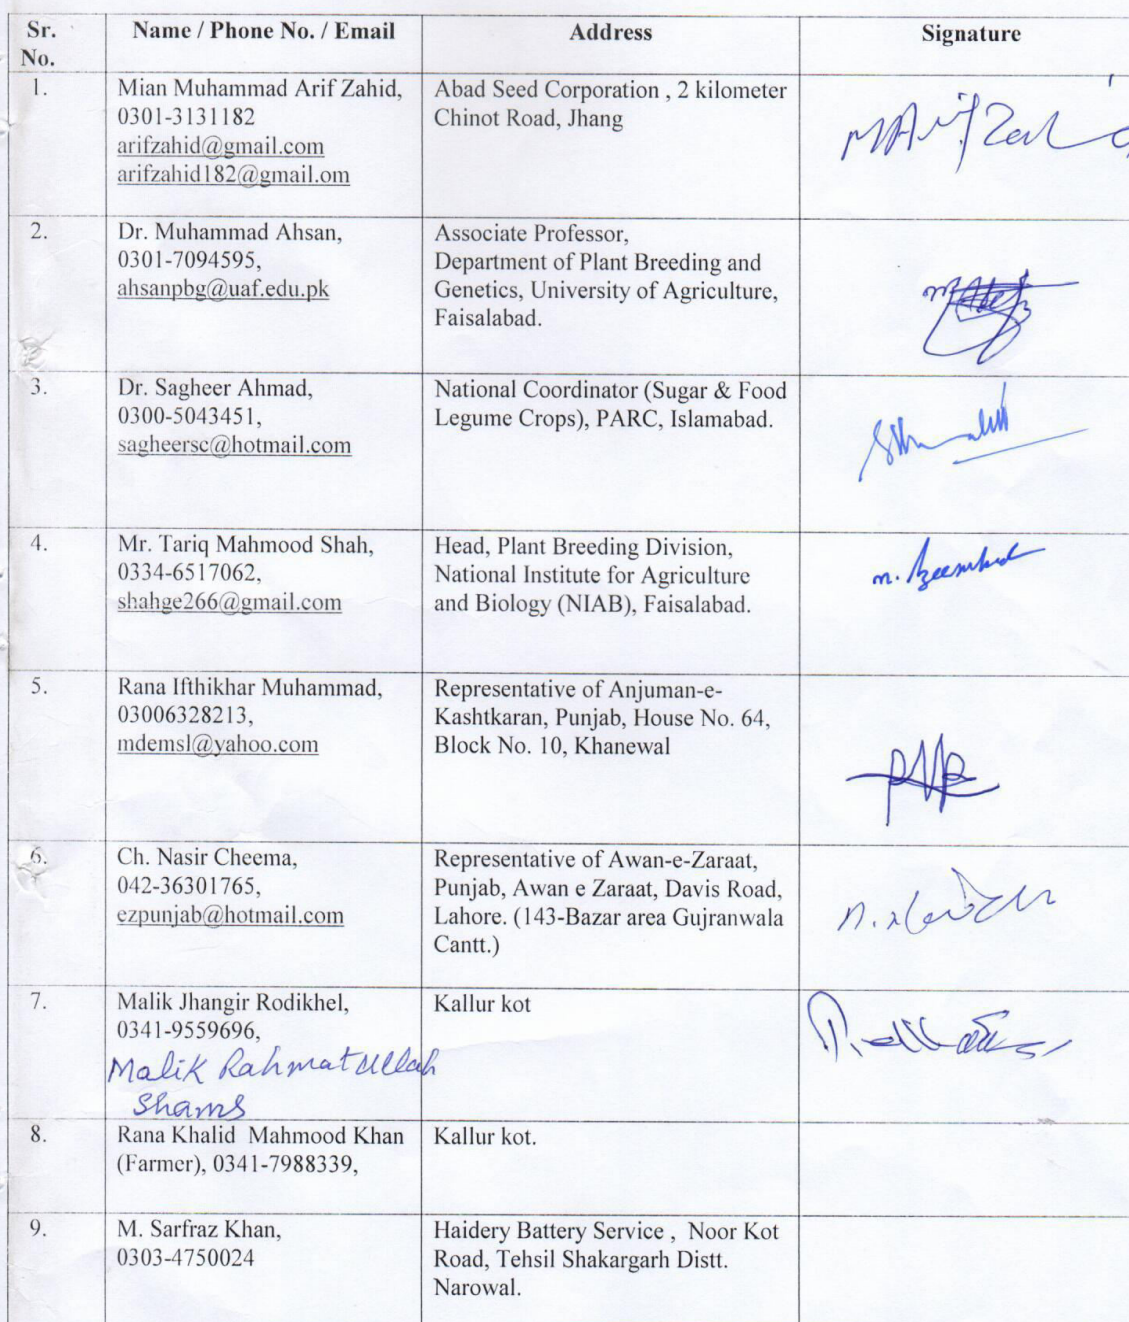 Sr. No.
Name / Phone No. / Email
Address
Signature
1.
Mian Muhammad Arif Zahid,
0301-3131182
arifzahid@gmail.com
arifzahid182@gmail.om
Abad Seed Corporation , 2 kilometer
Chinot Road, Jhang
MArif Zahid
2.
Dr. Muhammad Ahsan,
0301-7094595,
ahsanpbg@uaf.edu.pk
Associate Professor,
Department of Plant Breeding and
Genetics, University of Agriculture,
Faisalabad.
3.
Dr. Sagheer Ahmad,
0300-5043451,
sagheersc@hotmail.com
National Coordinator (Sugar & Food
Legume Crops), PARC, Islamabad.
4.
Mr. Tariq Mahmood Shah,
0334-6517062,
shahge266@gmail.com
Head, Plant Breeding Division,
National Institute for Agriculture
and Biology (NIAB), Faisalabad.
5.
Rana Ifthikhar Muhammad,
03006328213,
mdemsl@yahoo.com
Representative of Anjuman-e-
Kashtkaran, Punjab, House No. 64,
Block No. 10, Khanewal
6.
Ch. Nasir Cheema,
042-36301765,
ezpunjab@hotmail.com
Representative of Awan-e-Zaraat,
Punjab, Awan e Zaraat, Davis Road,
Lahore. (143-Bazar area Gujranwala
Cantt.)
7.
Malik Jhangir Rodikhel,
0341-9559696,
Malik Rahmatullah
Shams
Kallur kot
8.
Rana Khalid Mahmood Khan
(Farmer), 0341-7988339,
Kallur kot.
9.
M. Sarfraz Khan,
0303-4750024
Haidery Battery Service , Noor Kot
Road, Tehsil Shakargarh Distt.
Narowal.